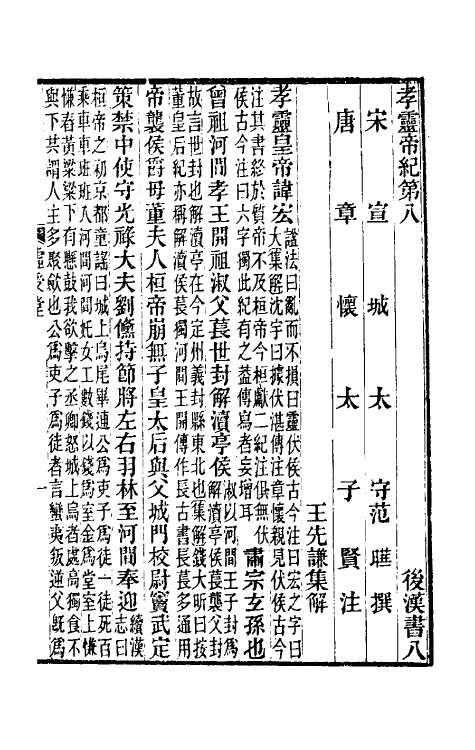 孝靈帝紀第八 後漢書八
宋宣城太守范曄撰
唐章懷太子賢注
王先謙集解
孝靈皇帝諱宏諡法曰亂而不損曰靈伏侯古今注曰宏之字曰
大集解沈宇曰據伏湛傳注章懷親見伏侯古今
注其書終於質帝不及桓帝今桓獻二紀注俱無伏
侯古今注曰六字獨此紀有之蓋傳寫者妄增耳肅宗玄孫也
曾祖河間孝王開祖淑父萇世封解瀆亭侯淑以河間王子封爲
解瀆亭侯萇襲父封
故言世封也解瀆亭在今定州義封縣東北也集解錢大昕曰按
董皇后紀亦稱解瀆侯萇獨河間王開傳作長古書長萇多通用
帝襲侯爵母董夫人桓帝崩無子皇太后與父城門校尉竇武定
策禁中使守光祿大夫劉儵持節將左右羽林至河間奉迎續漢
志曰
桓帝之初京都童謡曰城上烏尾畢逋公爲吏子爲徒一徒死百
乘車車班班入河間河間奼女工數錢以錢爲室金爲堂室上慊
慊舂黃粱粱下有懸鼓我欲擊之丞卿怒城上烏者處高獨食不
與下共謂人主多聚歛也公爲吏子爲徒者言蠻夷叛逆父旣爲
虛受堂
一